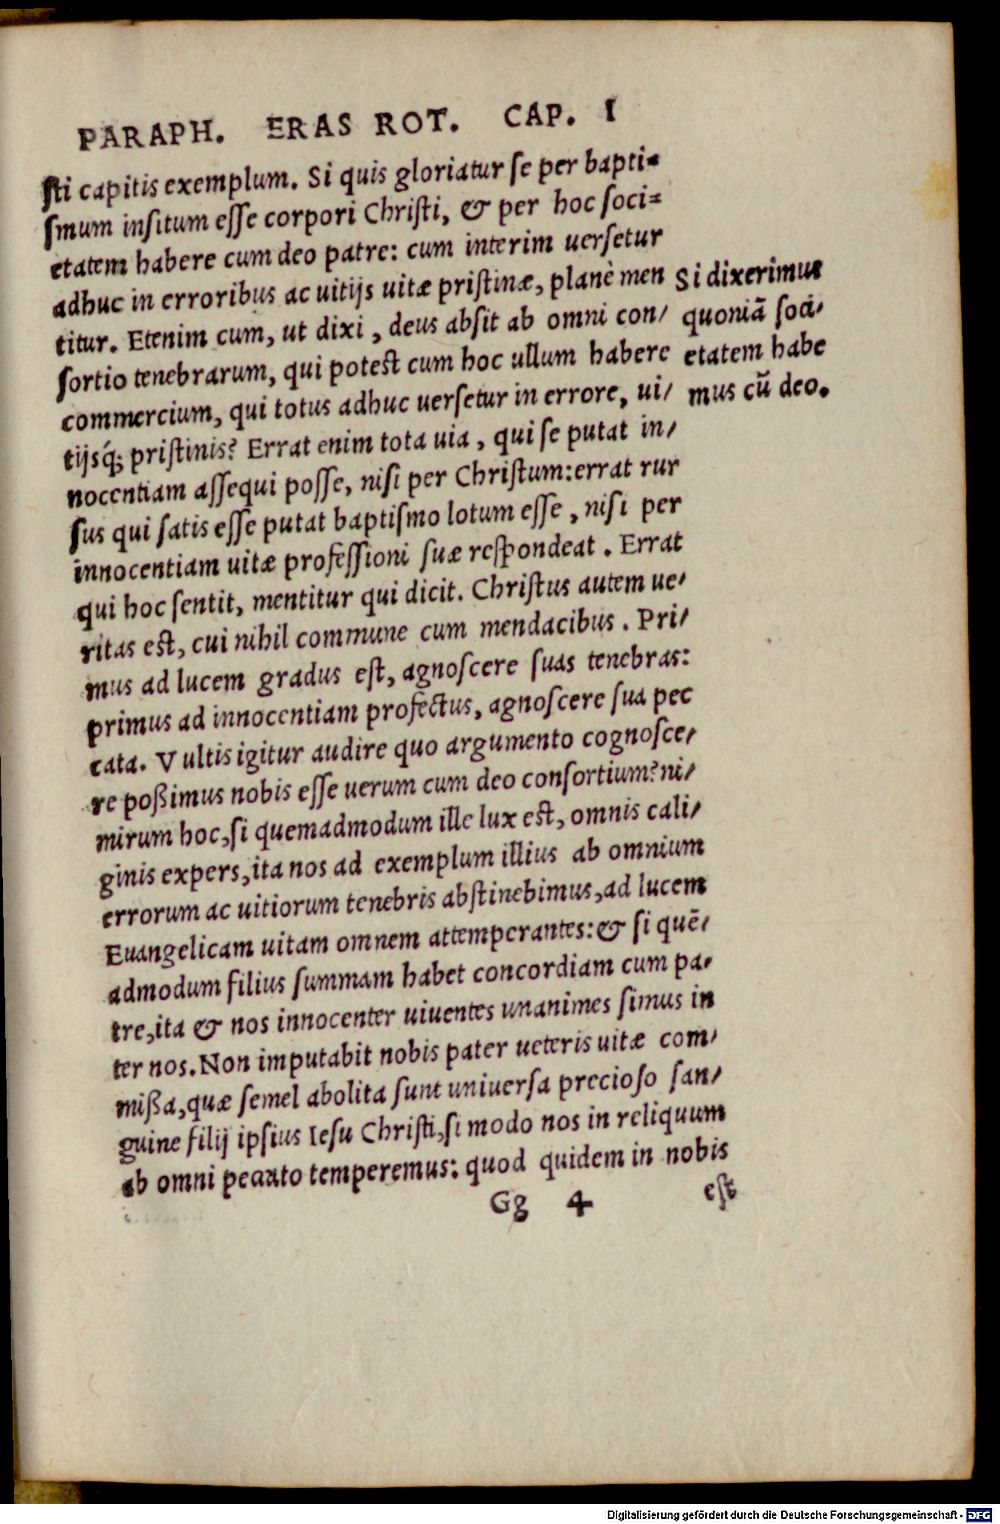 PARAPH. ERAS ROT. CAP. I
sti capitis exemplum. Si quis gloriatur se per bapti=
smum insitum esse corpori Christi, & per hoc soci=
etatem habere cum deo patre: cum interim uersetur
adhuc in erroribus ac uitijs uitæ pristinæ, planè men
titur. Etenim cum, ut dixi, deus absit ab omni con/
sortio tenebrarum, qui potest cum hoc ullum habere
commercium, qui totus adhuc uersetur in errore, ui/
tijsq́; pristinis? Errat enim tota uia, qui se putat in/
nocentiam assequi posse, nisi per Christum: errat rur
sus qui satis esse putat baptismo lotum esse, nisi per
innocentiam uitæ professioni suæ respondeat. Errat
qui hoc sentit, mentitur qui dicit. Christus autem ue/
ritas est, cui nihil commune cum mendacibus. Pri/
mus ad lucem gradus est, agnoscere suas tenebras:
primus ad innocentiam profectus, agnoscere sua pec
cata. Vultis igitur audire quo argumento cognosce/
re poßimus nobis esse uerum cum deo consortium? ni/
mirum hoc, si quemadmodum ille lux est, omnis cali/
ginis expers, ita nos ad exemplum illius ab omnium
errorum ac uitiorum tenebris abstinebimus, ad lucem
Euangelicam uitam omnem attemperantes: & si quẽ/
admodum filius summam habet concordiam cum pa/
tre, ita & nos innocenter uiuentes unanimes simus in
ter nos. Non imputabit nobis pater ueteris uitæ com/
mißa, quæ semel abolita sunt uniuersa precioso san/
guine filij ipsius Iesu Christi, si modo nos in reliquum
ab omni peccato temperemus: quod quidem in nobis
Gg 4 est
Si dixerimus
quoniã soci/
etatem habe
mus cũ deo.
Digitalisierung gefördert durch die Deutsche Forschungsgemeinschaft - DFG